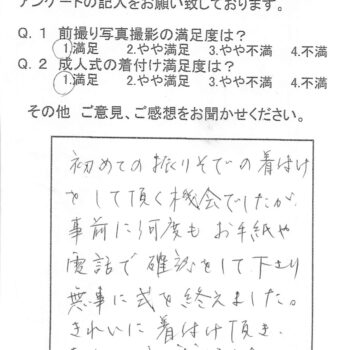 アンケートの記入をお願い致しております。
Q. 1 前撮り写真撮影の満足度は?
1.満足 2.やや満足 3.やや不満 4.不満
Q. 2 成人式の着付け満足度は?
1.満足 2.やや満足 3.やや不満 4.不満
その他 ご意見、ご感想をお聞かせください。
初めてのふりそでの着付け
をして頂く機会でしたが
事前に何度もお手紙や
電話で確認をして下さり
無事に式を終えました。
きれいに着付け頂き、